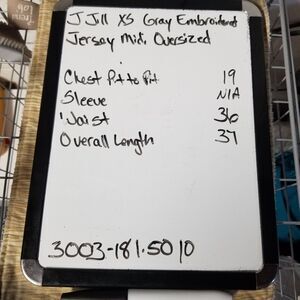 J Jill XS Gray Embroidered
Jersey Midi Oversized
Chest Pit to Pit 19
Sleeve N/A
Waist 36
Overall Length 37
3003-181.5010